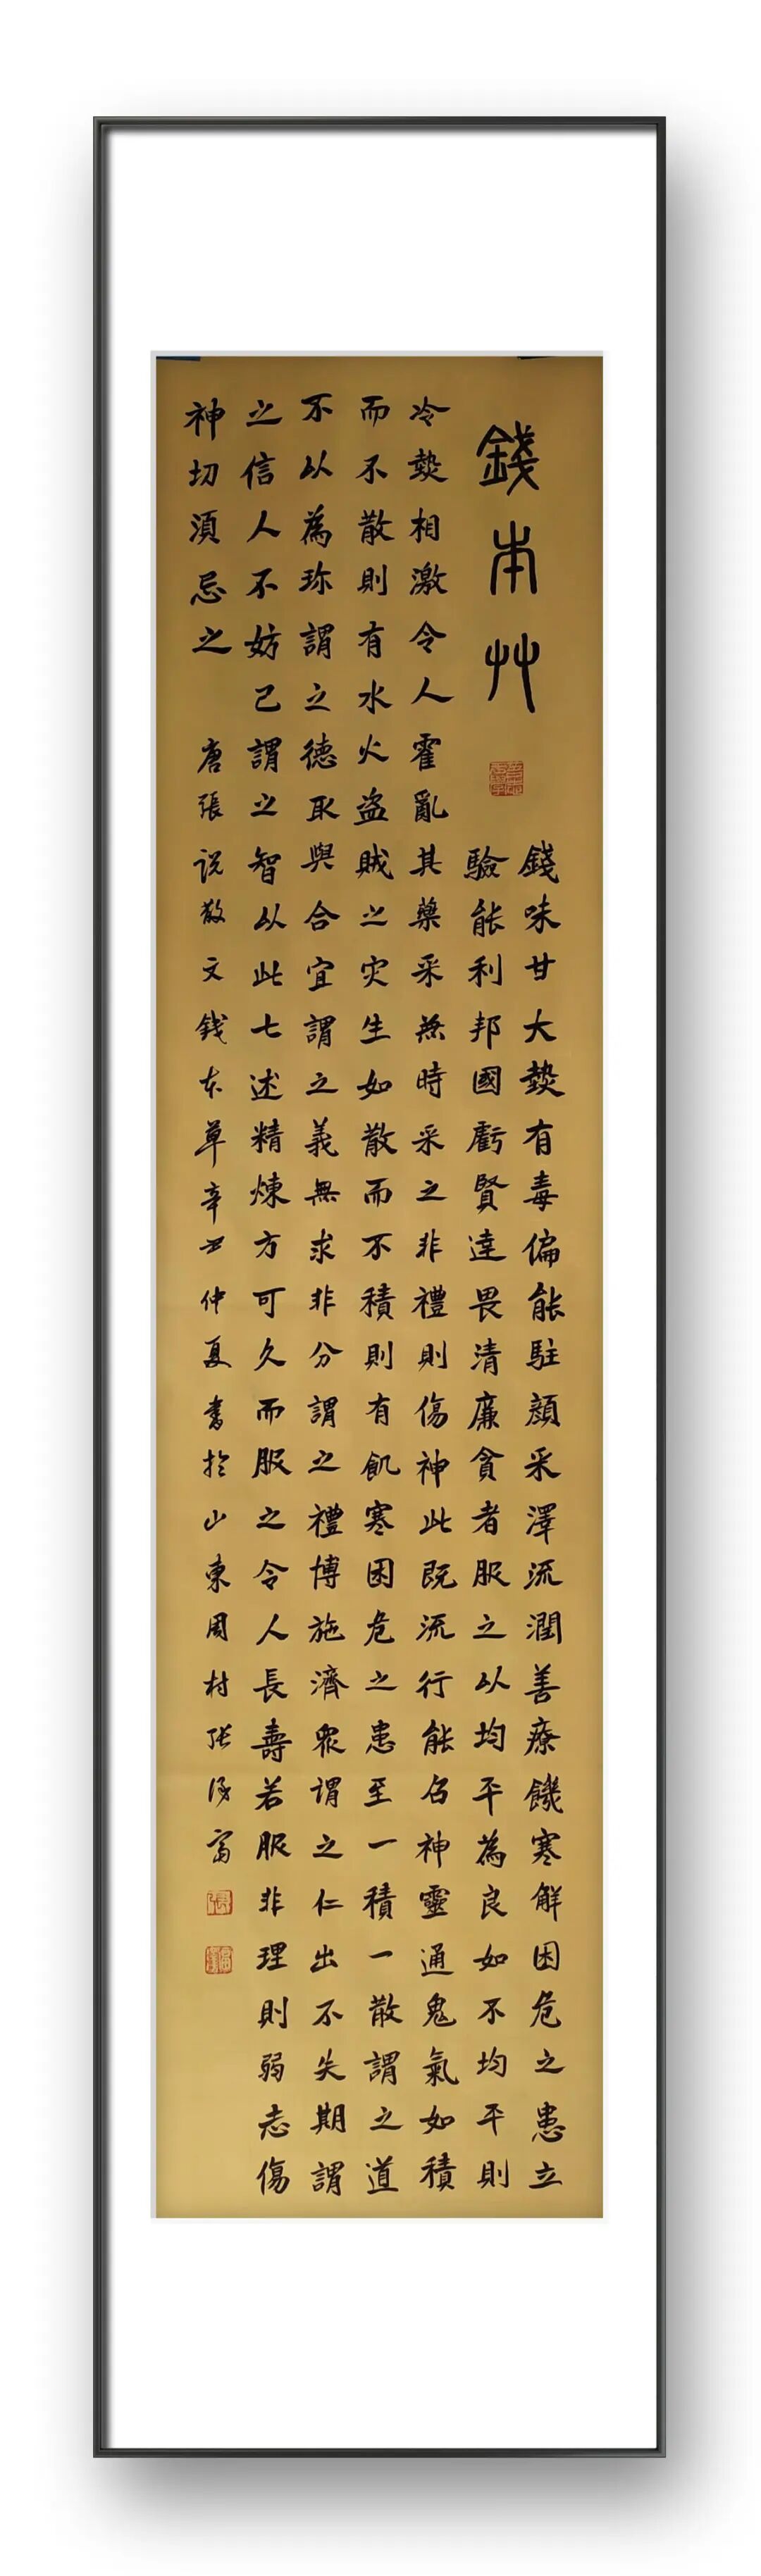 錢本艸
錢味甘大熱有毒偏能駐顏采澤流潤善療饑寒解困危之患立
驗能利邦國虧賢達畏清廉貪者服之以均平為良如不均平則
冷熱相激令人霍亂其藥采無時采之非禮則傷神此既流行能召神靈通鬼氣如積
而不散則有水火盜賊之灾生如散而不積則有飢寒困危之患至一積一散謂之道
不以為珎謂之德取與合宜謂之義無求非分謂之禮博施濟衆謂之仁出不失期謂
之信人不妨己謂之智以此七述精煉方可久而服之令人長壽若服非理則弱志傷
神切須忌之 唐張説散文錢本草辛丑仲夏書於山東周村張富